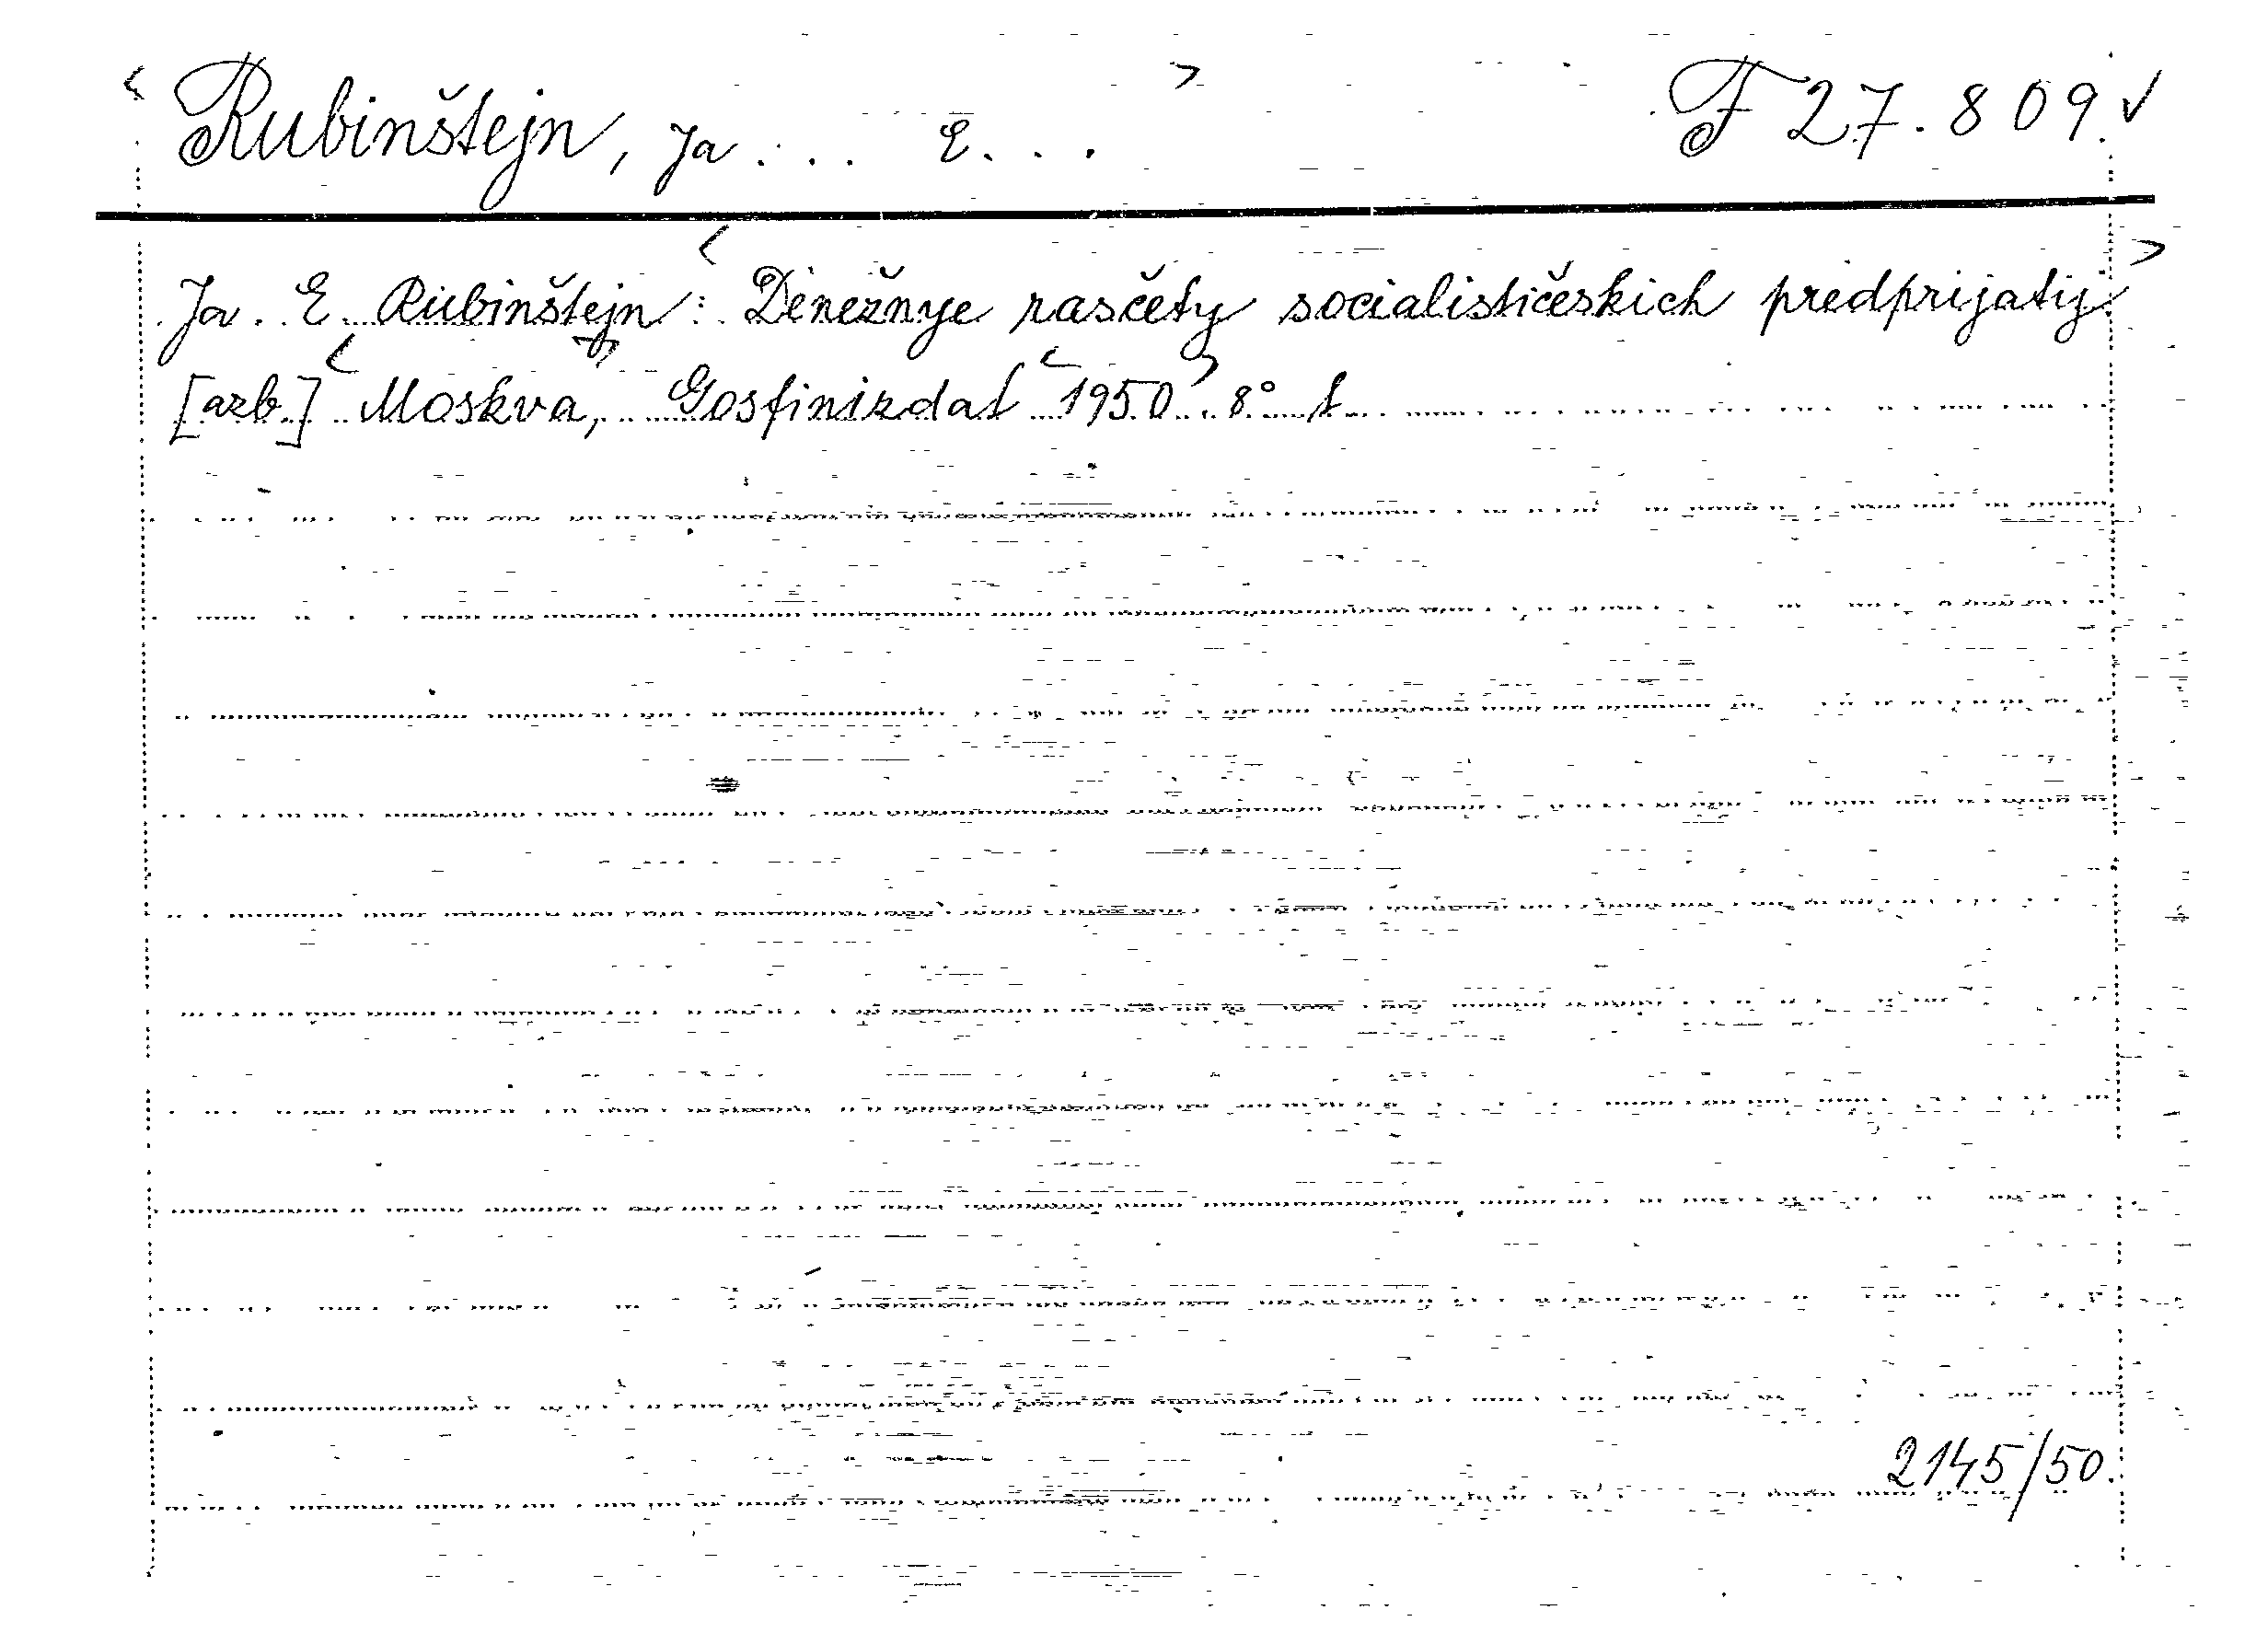 <Rubinštejn, Ja... E...> F 27.809 ✓
Ja. E. Rubinštejn: <Denežnye rasčety socialističeskich predprijatij>
[azb.] <Moskva,> Gosfinizdat <1950>. 8° t.
2145/50.